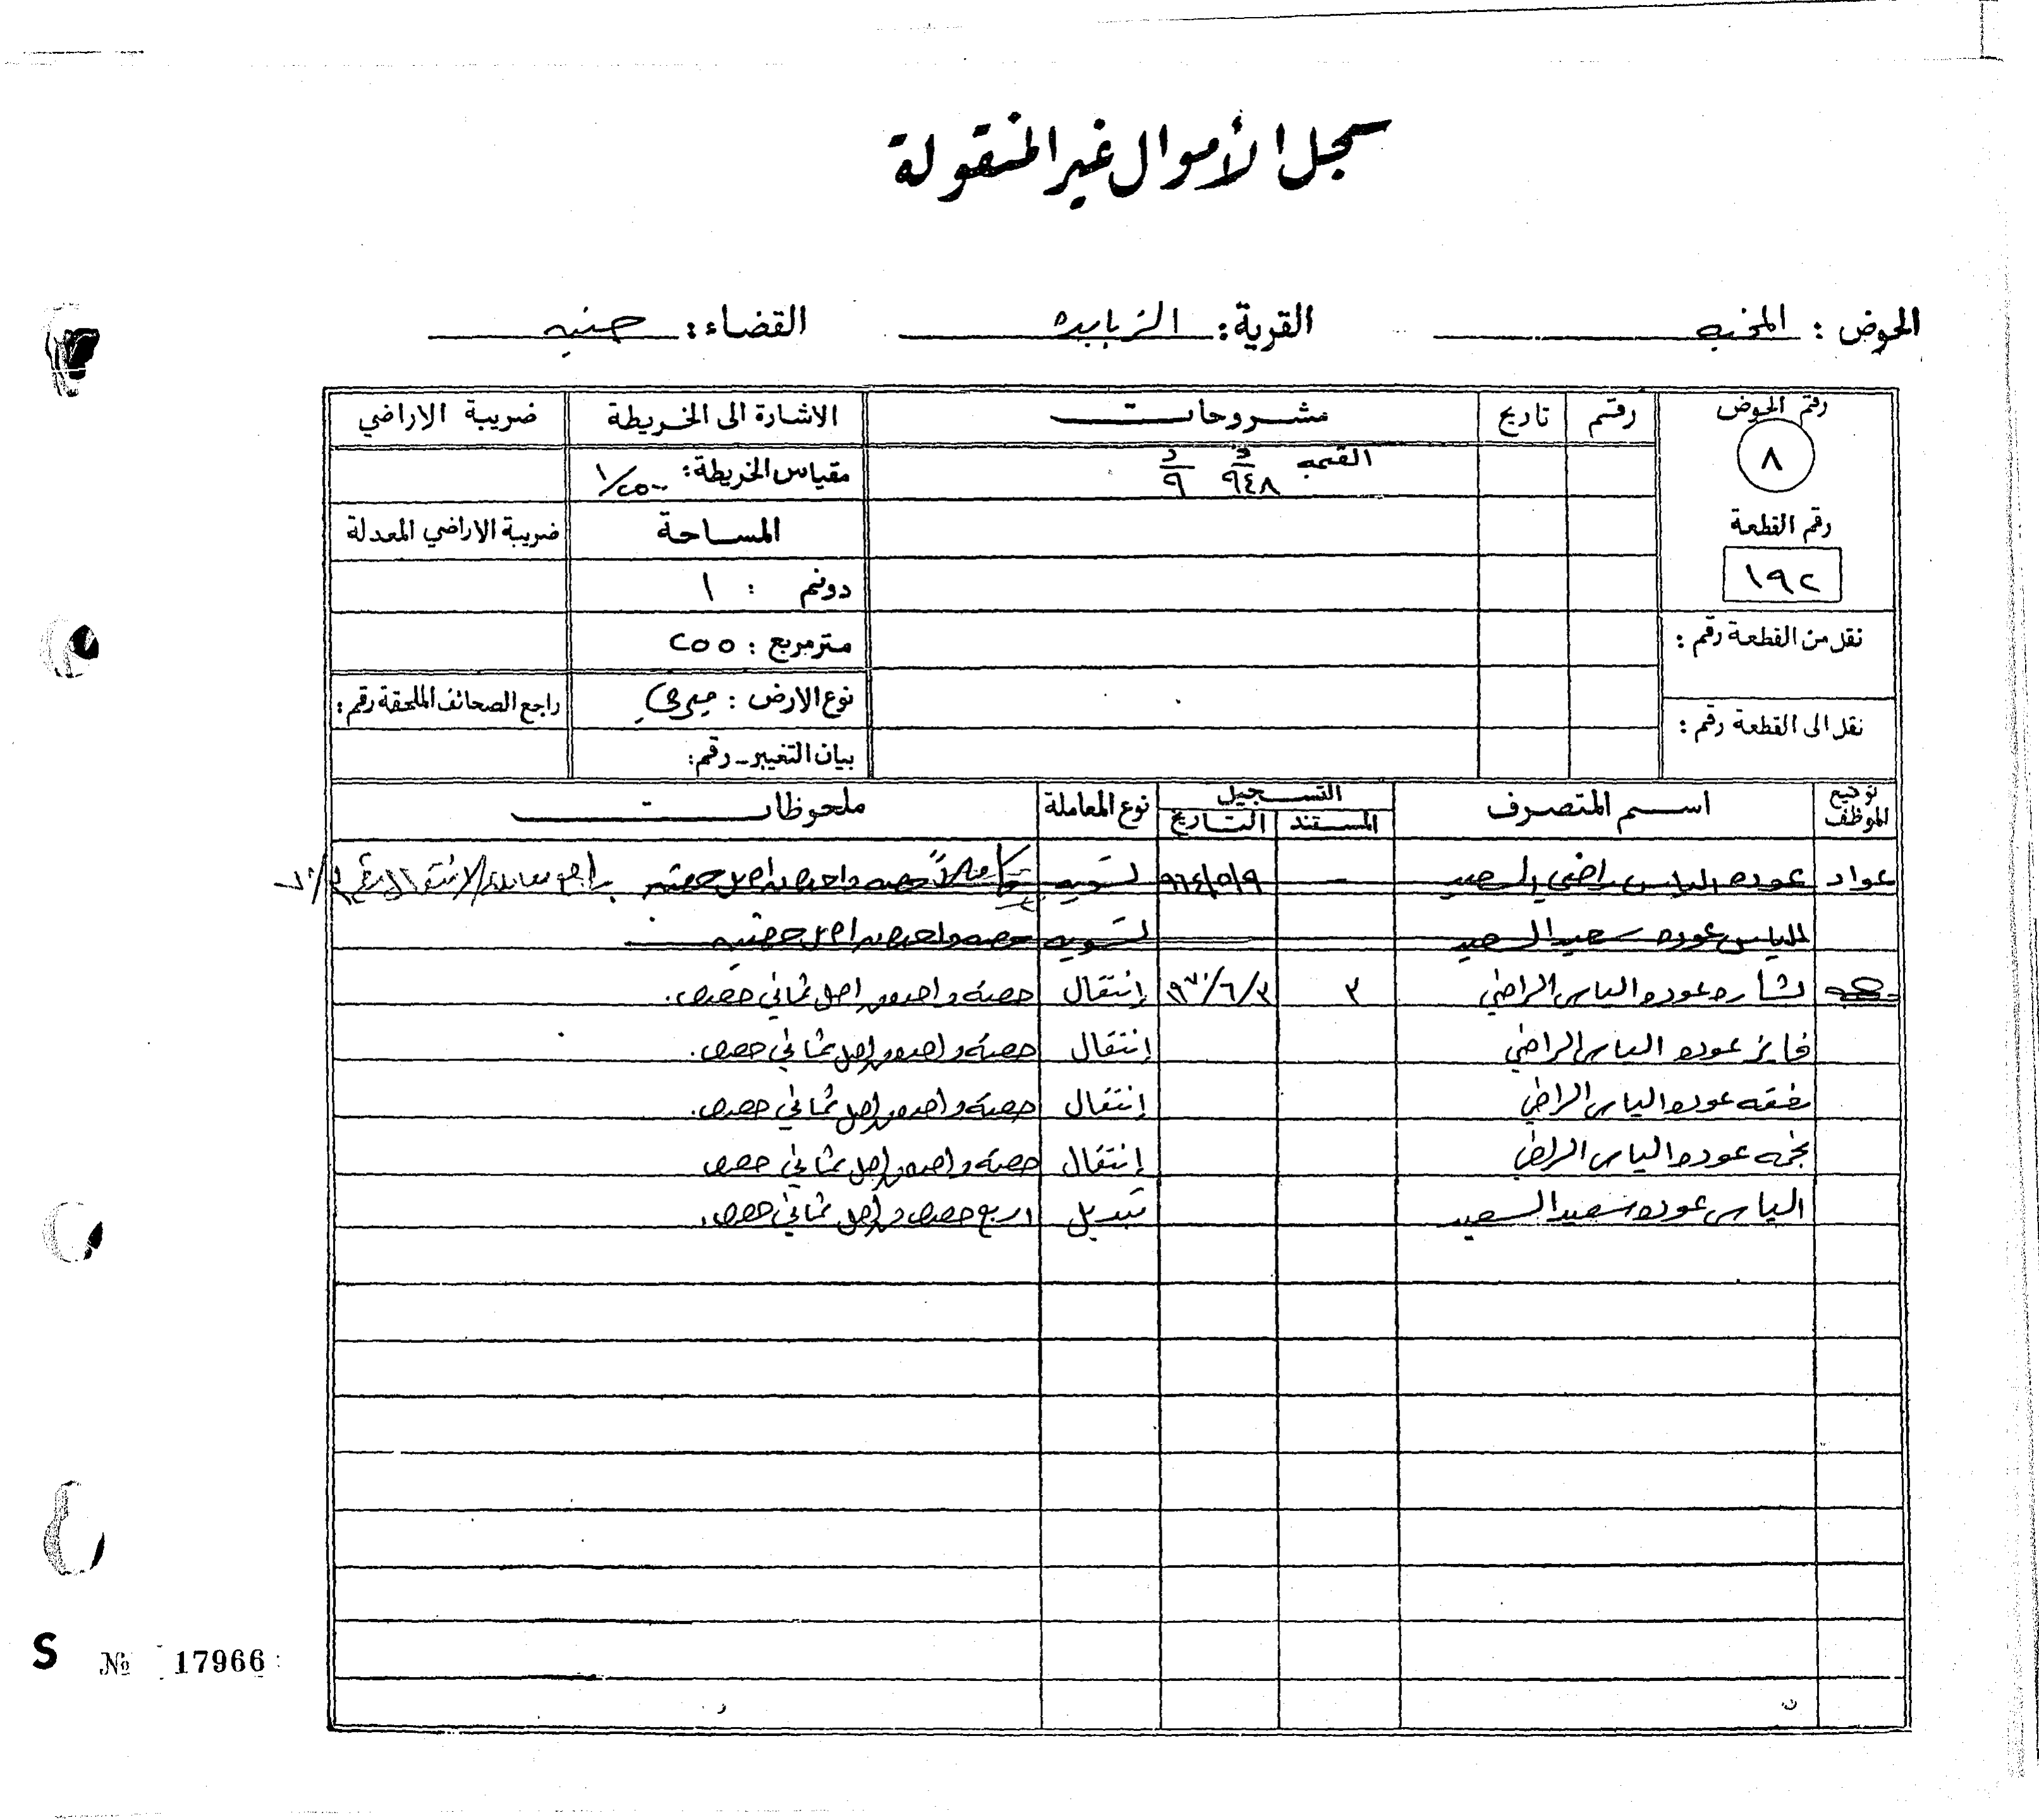 سجل الأموال غير المنقولة
الحوض : المخبه القرية : الزبابده القضاء : جنين
رقم الحوض رقم تاريخ مشروحات الاشارة الى الخريطة ضريبة الاراضي
٨ القيمه د/٩٤٨ د/٩ مقياس الخريطة : ١/٢٥٠٠
رقم القطعة المساحة ضريبة الاراضي المعدلة
١٩٢ دونم : ١
نقل من القطعة رقم : متر مربع : ٢٥٥
نوع الارض : ميري راجع الصحائف الملحقة رقم :
نقل الى القطعة رقم : بيان التغيير - رقم :
توقيع الموظف اسم المتصرف التسجيل نوع المعاملة ملحوظات
المستند التاريخ
عواد عوده الياس راضي السعيد - ٩٦٤/٥/٩ تسويه كاملاً حصه واحده من اصل حصتين راجع معاملة الانتقال رقم
الياس عوده سعيد السعيد تسويه حصه واحده من اصل حصتين
بشاره عوده الياس الراضي ٣ ٩٧٠/٦/٣ إنتقال حصة واحده من اصل ثماني حصص.
فايز عوده الياس الراضي إنتقال حصة واحده من اصل ثماني حصص.
رفقه عوده الياس الراضي إنتقال حصة واحده من اصل ثماني حصص.
نجمه عوده الياس الراضي إنتقال حصة واحده من اصل ثماني حصص
الياس عوده سعيد السعيد تبديل اربع حصص من اصل ثماني حصص.
S № 17966